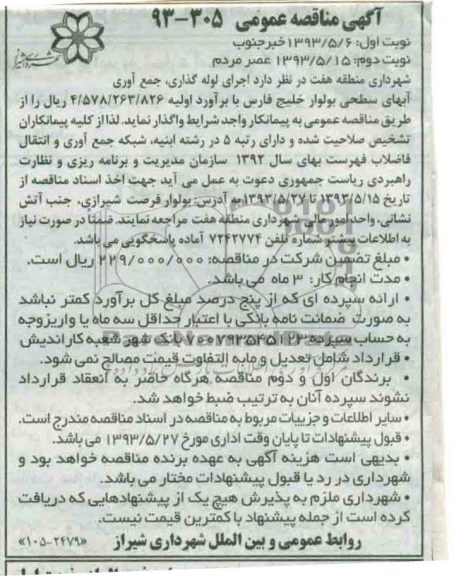 آگهی مناقصه عمومی ۳۰۵-۹۳
نوبت اول: ۱۳۹۳/۵/۶ خبرجنوب
نوبت دوم: ۱۳۹۳/۵/۱۵ عصر مردم
شهرداری منطقه هفت در نظر دارد اجرای لوله گذاری، جمع آوری
آبهای سطحی بولوار خلیج فارس با برآورد اولیه ۴/۵۷۸/۲۶۳/۸۲۶ ریال را از
طریق مناقصه عمومی به پیمانکار واجد شرایط واگذار نماید. لذا از کلیه پیمانکاران
تشخیص صلاحیت شده و دارای رتبه ۵ در رشته ابنیه، شبکه جمع آوری و انتقال
فاضلاب فهرست بهای سال ۱۳۹۲ سازمان مدیریت و برنامه ریزی و نظارت
راهبردی ریاست جمهوری دعوت به عمل می آید جهت اخذ اسناد مناقصه از
تاریخ ۱۳۹۳/۵/۱۵ تا ۱۳۹۳/۵/۲۷ به آدرس: بولوار فرصت شیرازی، جنب آتش
نشانی، واحد امور مالی شهرداری منطقه هفت مراجعه نمایند. ضمنا در صورت نیاز
به اطلاعات بیشتر شماره تلفن ۷۲۴۲۷۷۴ آماده پاسخگویی می باشد.
• مبلغ تضمین شرکت در مناقصه: ۲۲۹/۰۰۰/۰۰۰ ریال است.
• مدت انجام کار: ۳ ماه می باشد.
• ارائه سپرده ای که از پنج درصد مبلغ کل برآورد کمتر نباشد
به صورت ضمانت نامه بانکی با اعتبار حداقل سه ماه یا واریز وجه
به حساب سپرده ۷۰۰۷۹۳۵۴۵۱۲۳ بانک شهر شعبه کاراندیش
• قرارداد شامل تعدیل و مابه التفاوت قیمت مصالح نمی شود.
برندگان اول و دوم مناقصه هرگاه حاضر به انعقاد قرارداد
نشوند سپرده آنان به ترتیب ضبط خواهد شد.
• سایر اطلاعات و جزییات مربوط به مناقصه در اسناد مناقصه مندرج است.
• قبول پیشنهادات تا پایان وقت اداری مورخ ۱۳۹۳/۵/۲۷ می باشد.
• بدیهی است هزینه آگهی به عهده برنده مناقصه خواهد بود و
شهرداری در رد یا قبول پیشنهادات مختار می باشد.
• شهرداری ملزم به پذیرش هیچ یک از پیشنهادهایی که دریافت
کرده است از جمله پیشنهاد با کمترین قیمت نیست.
روابط عمومی و بین الملل شهرداری شیراز «۱۰۵-۲۴۷۹»